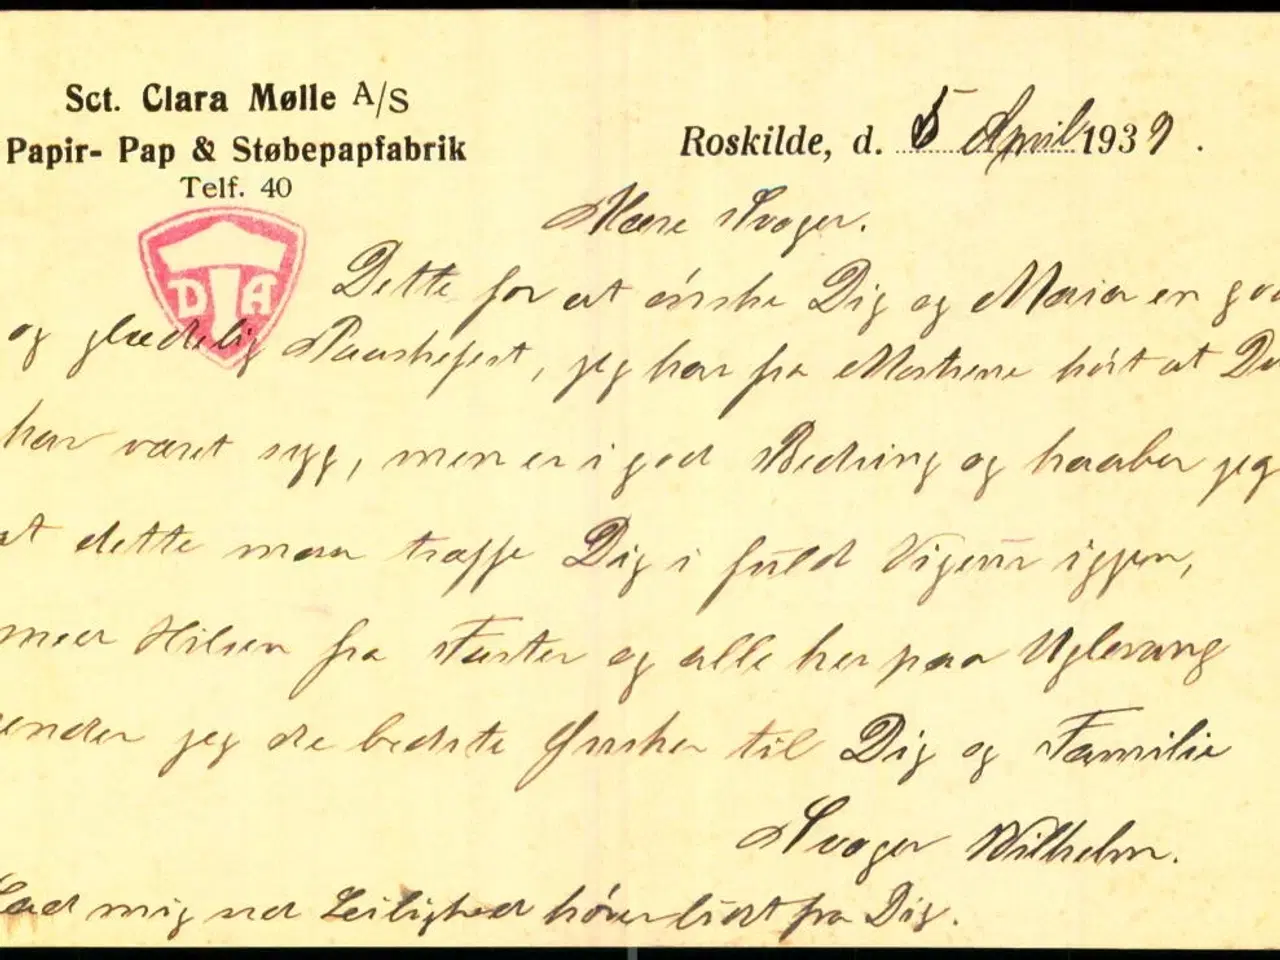 Sct. Clara Mølle A/S
Papir- Pap & Støbepapfabrik
Telf. 40
Roskilde, d. 5 April 1939.
Kære Svoger.
D A
Dette for at ønske Dig og Maria en god
og glædelig Paaskefest, jeg har fra hørt at Du
har været syg, men er i god Bedring og haaber jeg
at dette maa træffe Dig i fuld Vigeur iggen,
meer Hilsen fra Faster og alle her paa Uglevang
sender jeg de bedste Ønsker til Dig og Familie
Svoger Wilhelm.
Lad mig ved Leilighed høre lidt fra Dig.